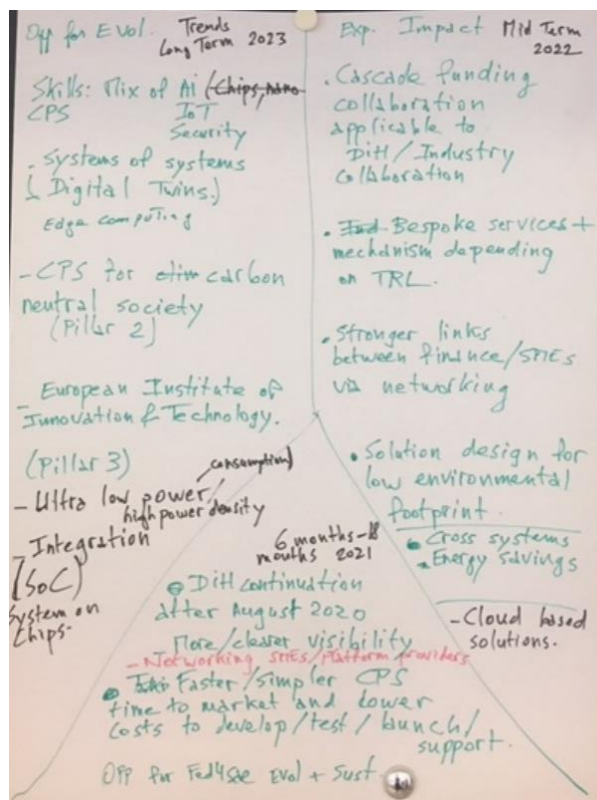 Opp for Evol. Trends
Long Term 2023
Skills: Mix of Ai (Chips, nano
CPS IoT
Security
. Systems of systems
(Digital Twins.)
Edge computing
- CPS for clim carbon
neutral society
(Pillar 2)
- European Institute of
Innovation & Technology.
(Pillar 3)
- Ultra low power / consumption)
high power density
- Integration
(SoC)
System on
Chips-
Exp. Impact Mid Term
2022
. Cascade funding
collaboration
applicable to
DiH / Industry
Collaboration
. Bespoke services +
mechanism depending
on TRL.
. Stronger links
between finance/SMEs
via networking
• Solution design for
low environmental
footprint.
• Cross systems
- Energy savings
- Cloud based
solutions.
6 months - 18
months 2021
• DiH continuation
after August 2020
More/clearer visibility
- Networking SMEs/Platform providers
• Faster/simpler CPS
time to market and lower
costs to develop/test/launch/
support.
Opp for Fed4Sae Evol + Sust.